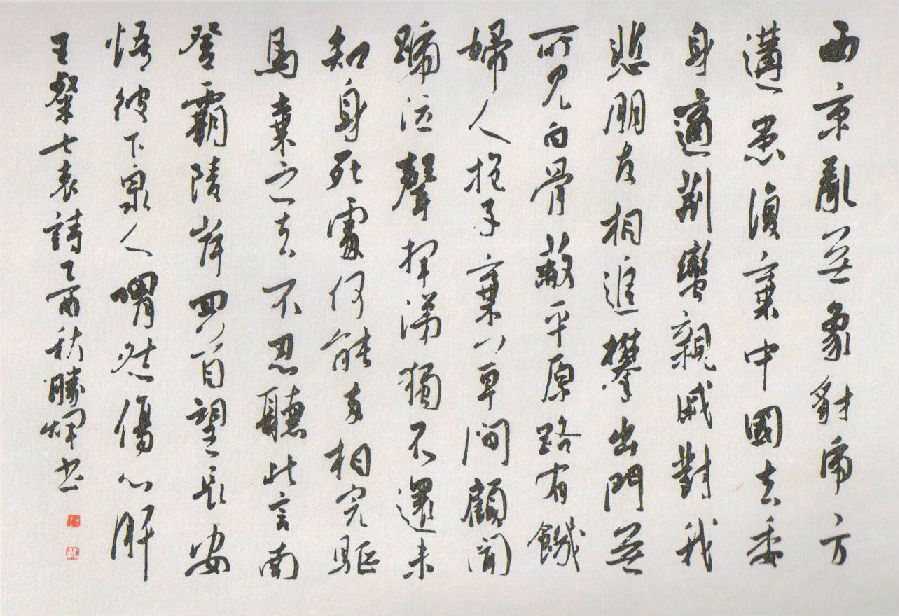 西京亂無象豺虎方
遘患復棄中國去委
身適荊蠻親戚對我
悲朋友相追攀出門無
所見白骨蔽平原路有饑
婦人抱子棄於草間顧聞
號泣聲揮涕獨不還未
知身死處何能兩相完驅
馬棄之去不忍聽此言南
登霸陵岸回首望長安
悟彼下泉人喟然傷心肝
王粲七哀詩乙酉秋勝煇书